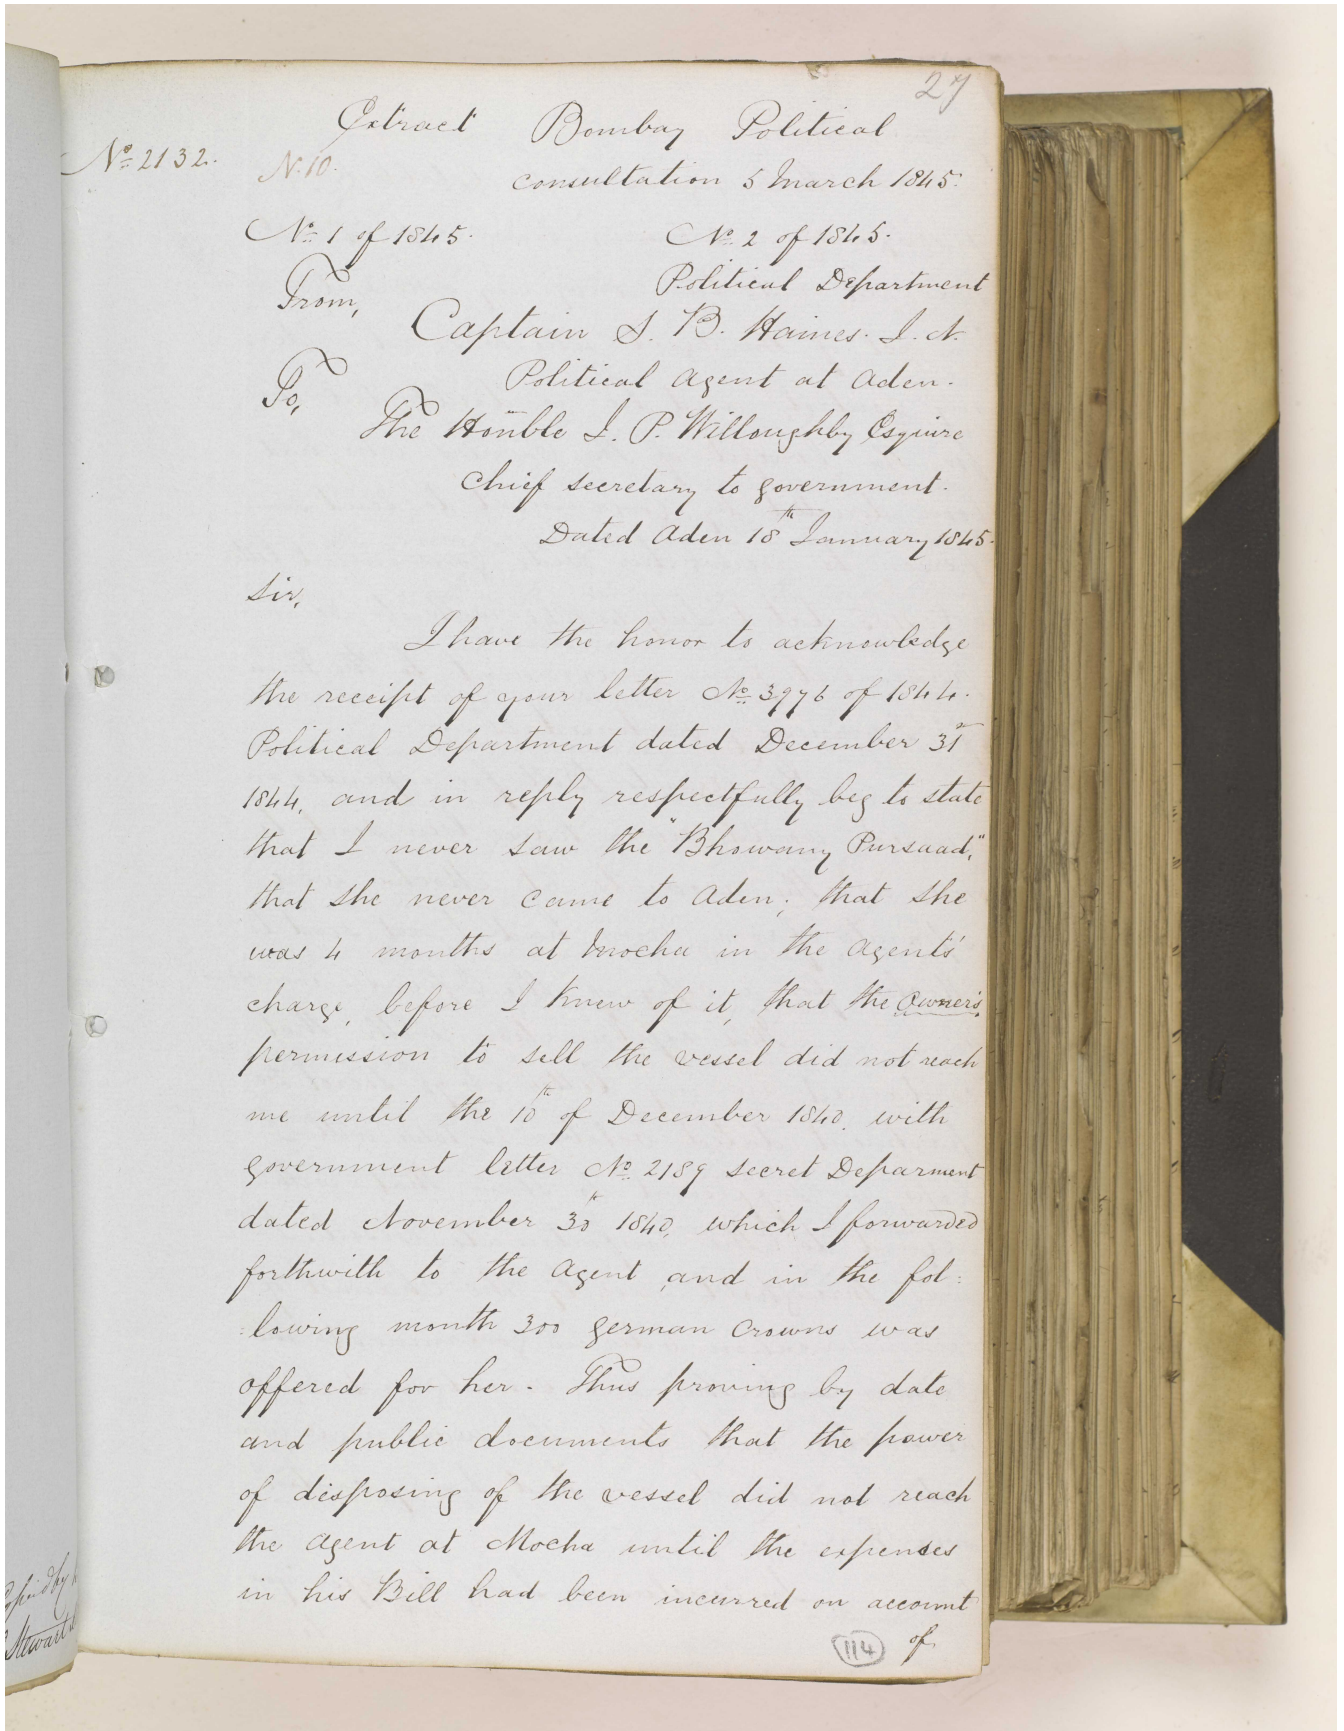 27
Extract Bombay Political
No 2132. N. 10.
Consultation 5 March 1845.
No 1 of 1845. No 2 of 1845.
Political Department
From,
Captain S. B. Haines. I. N.
Political Agent at Aden.
To,
The Honble J. P. Willoughby Esquire
Chief Secretary to Government.
Dated Aden 18th January 1845.
Sir,
I have the honor to acknowledge
the receipt of your letter No 3976 of 1844.
Political Department dated December 31st
1844, and in reply respectfully beg to state
that I never saw the "Bhowany Pursaad,"
that she never came to Aden; that she
was 4 months at Mocha in the Agents'
charge, before I knew of it, that the Owner's
permission to sell the vessel did not reach
me until the 10th of December 1840. with
Government letter No 2189 Secret Deparment
dated November 30th 1840, which I forwarded
forthwith to the Agent, and in the fol=
=lowing month 300 German Crowns was
offered for her. Thus proving by date
and public documents that the power
of disposing of the vessel did not reach
the Agent at Mocha until the expenses
in his Bill had been incurred on account
of
114
Stewart